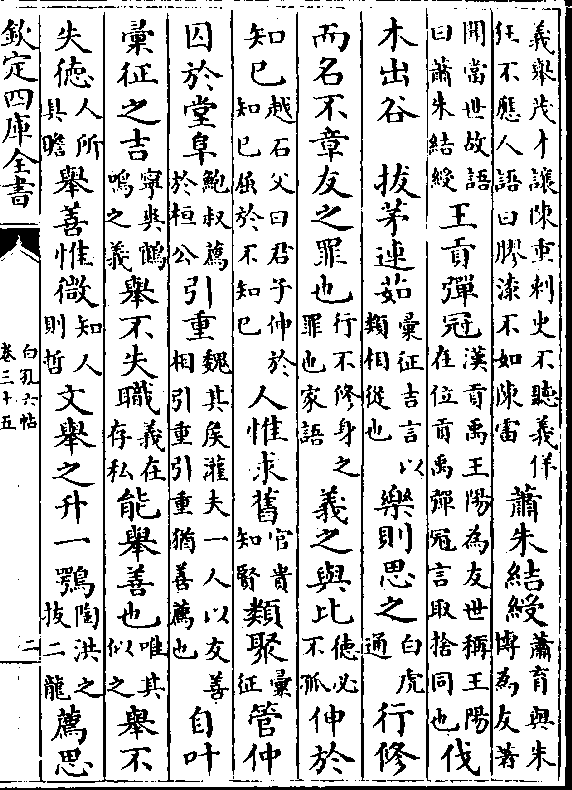 義舉茂才讓陳重刺史不聽義佯狂不應人語曰膠漆不如陳雷 蕭朱結綬 蕭育與朱博為友著
聞當世故語曰蕭朱結綬 王貢彈冠 漢貢禹王陽為友世稱王陽在位貢禹彈冠言取捨同也 伐
木出谷 拔茅連茹 彙征吉言以類相從也 樂則思之 白虎通 行修
而名不章友之罪也 行不修身之罪也家語 義之與比 德必不孤 伸於
知已 越石父曰君子伸於知已屈於不知已 人惟求舊 官貴知賢 類聚 彙征 管仲
囚於堂阜 鮑叔薦於桓公 引重 魏其侯灌夫一人以友善相引重引重猶善薦也 自叶
彙征之吉 寧與鶴鳴之義 舉不失職 義在存私 能舉善也 唯其似之 舉不
失德 人所具瞻 舉善惟微 知人則哲 文舉之升一鶚 陶洪之拔二龍 薦思
欽定四庫全書
白孔六帖
卷三十五
二